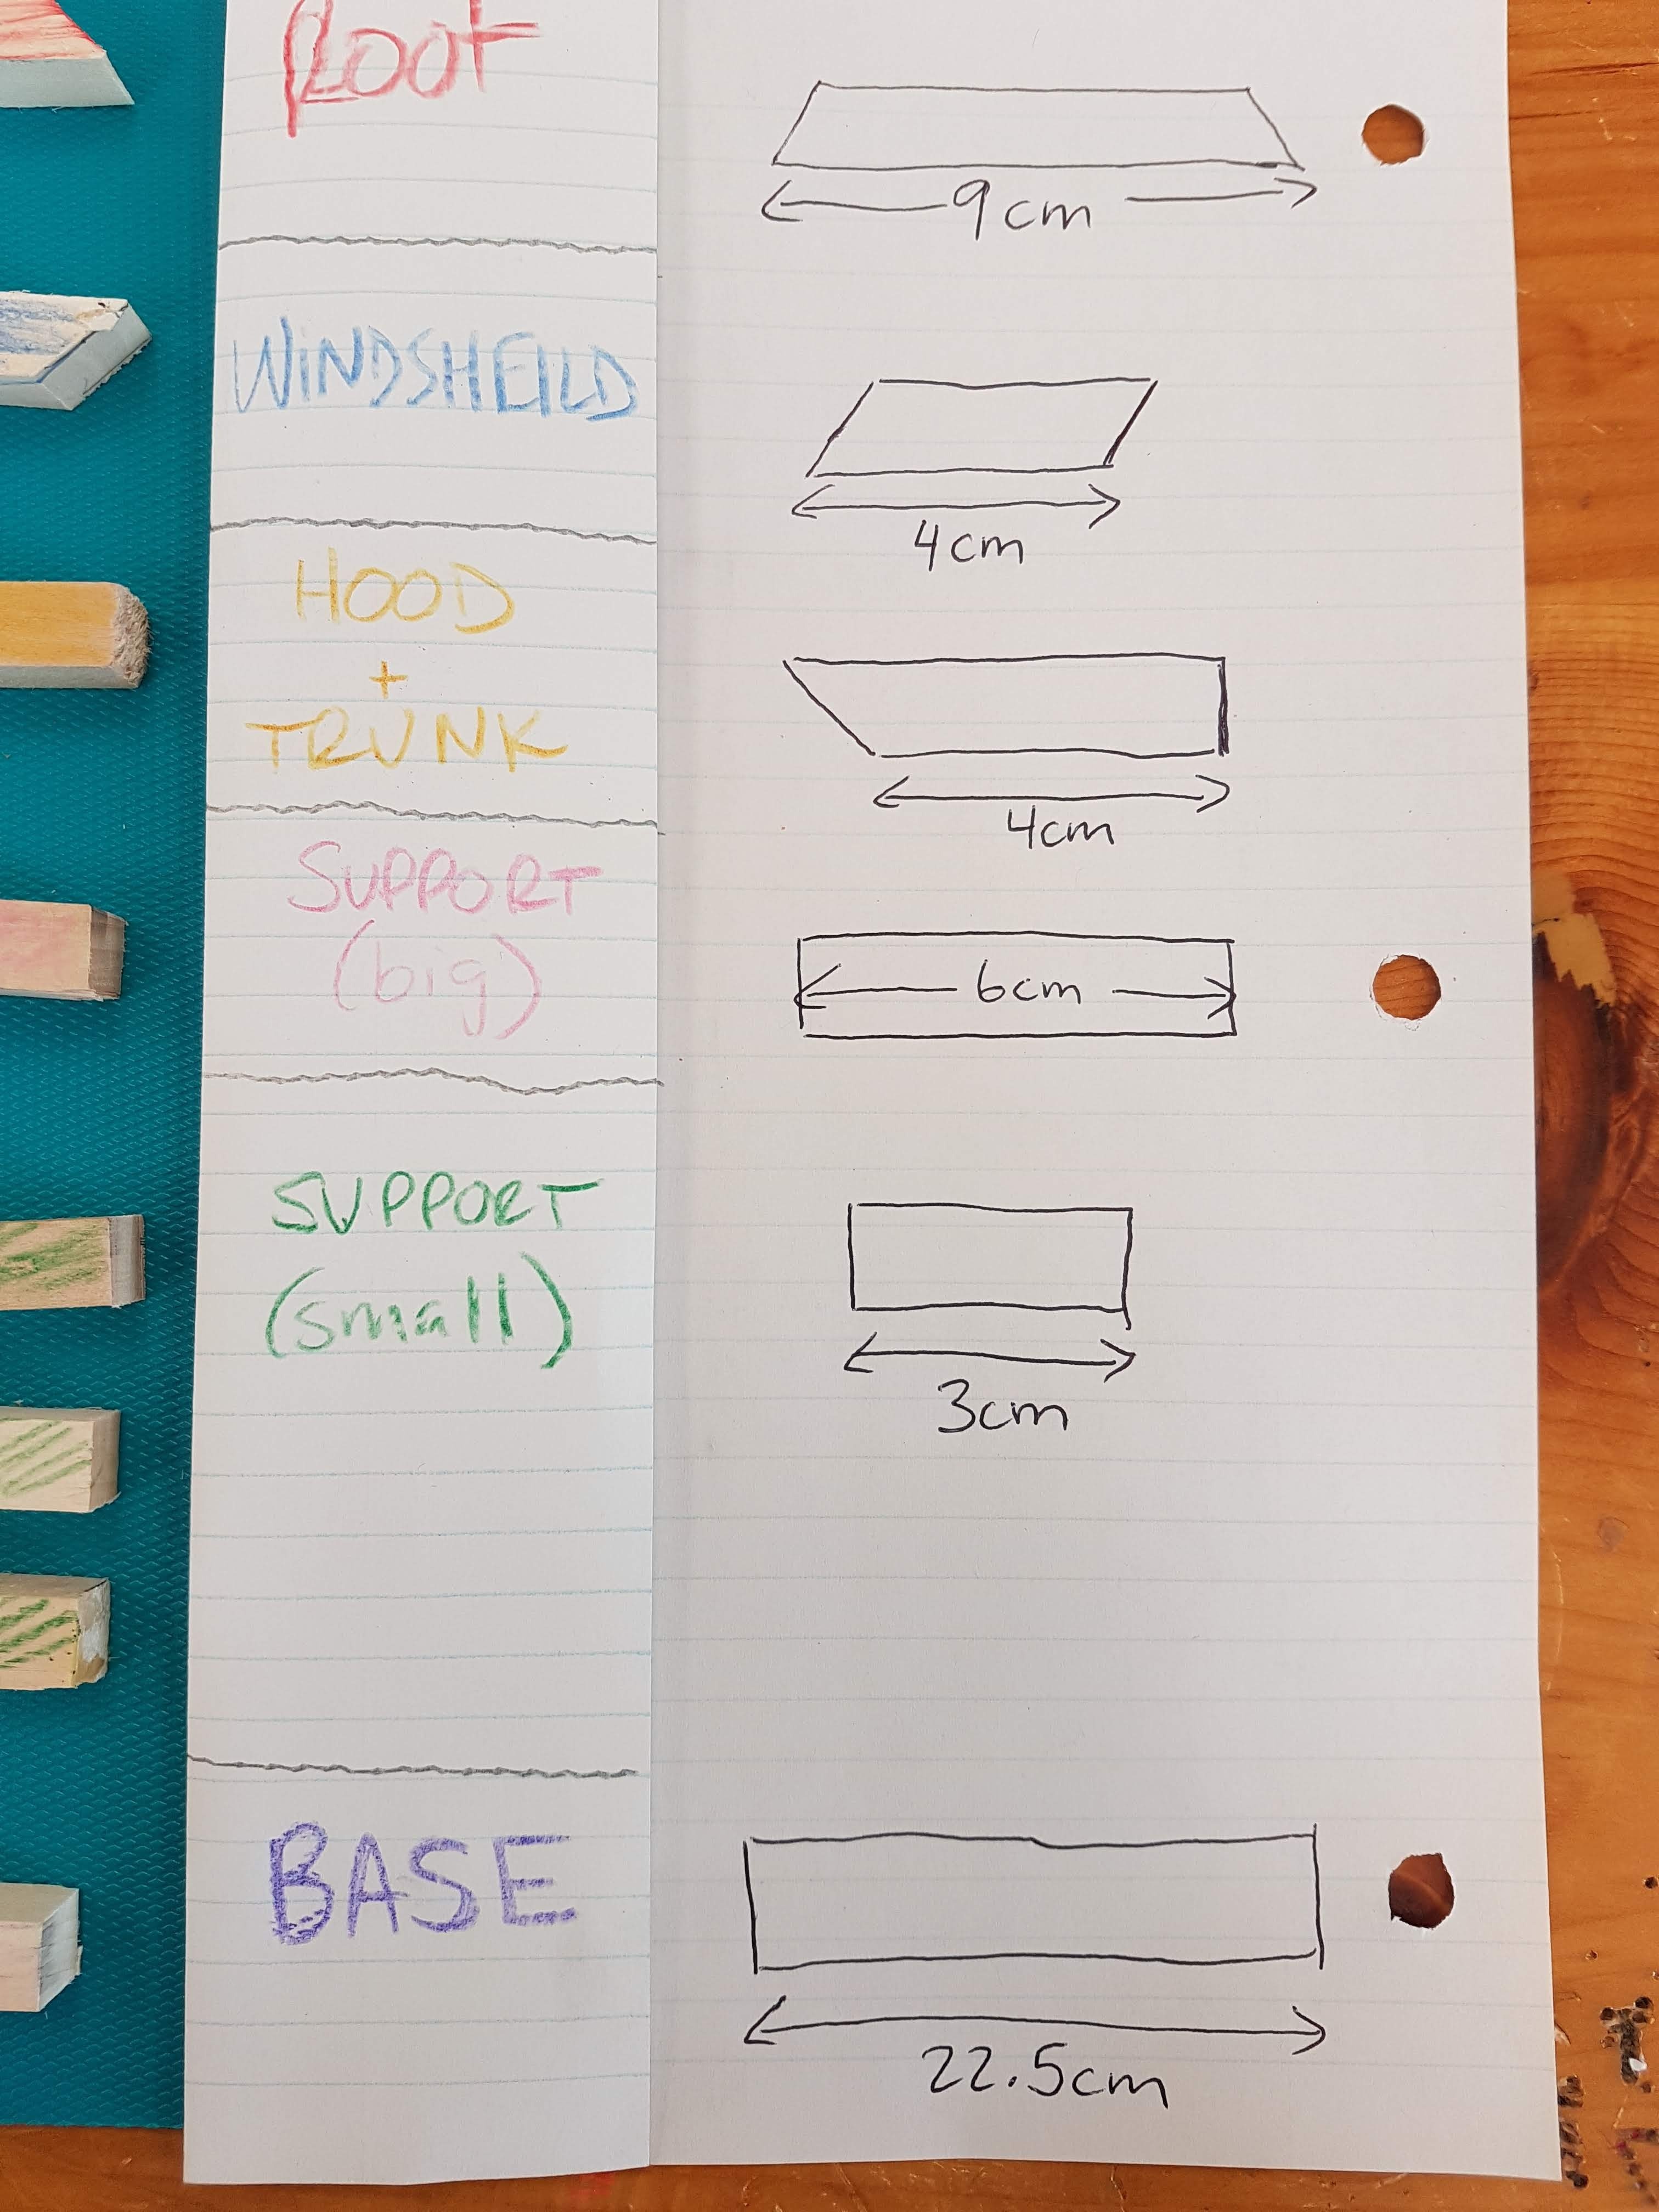 Roof
9cm
WINDSHEILD
4cm
HOOD
+
TRUNK
4cm
SUPPORT
(big)
6cm
SUPPORT
(small)
3cm
BASE
22.5cm